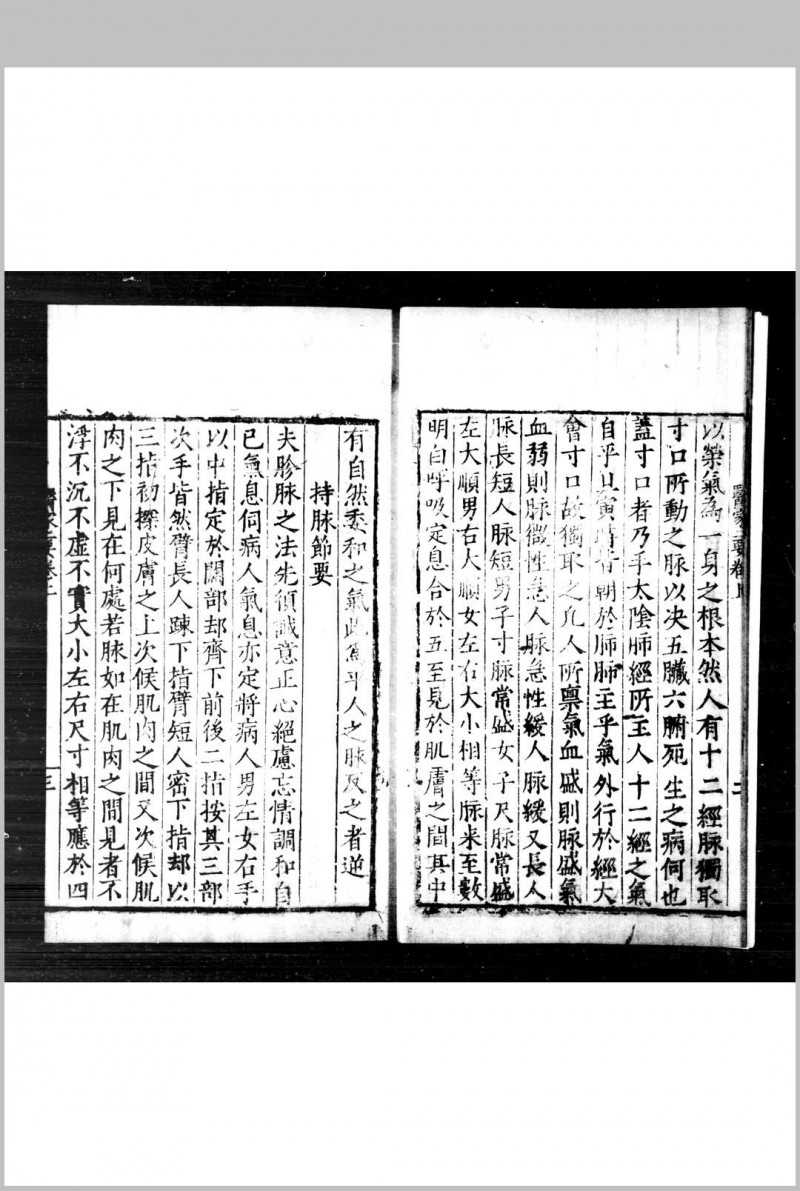 以榮氣為一身之根本然人有十二經脉獨取
寸口所動之脉以决五臟六腑死生之病何也
蓋寸口者乃手太陰肺經所主人十二經之氣
自平旦寅時皆朝於肺肺主乎氣外行於經大
會寸口故獨取之凡人所禀氣血盛則脉盛氣
血弱則脉微性急人脉急性緩人脉緩又長人
脉長短人脉短男子寸脉常盛女子尺脉常盛
左大順男右大順女左右大小相等脉来至數
明白呼吸定息合於五至見於肌膚之間其中
醫家二要卷上
二
有自然委和之氣此爲平人之脉反之者逆
持脉節要
夫胗脉之法先須誠意正心絕慮忘情調和自
已氣息伺病人氣息亦定將病人男左女右手
以中指定於關部却齊下前後二指按其三部
次手皆然臂長人踈下指臂短人密下指却以
三指初摖皮膚之上次候肌肉之間又次候肌
肉之下見在何處若脉如在肌肉之間見者不
浮不沉不虛不實大小左右尺寸相等應於四
三